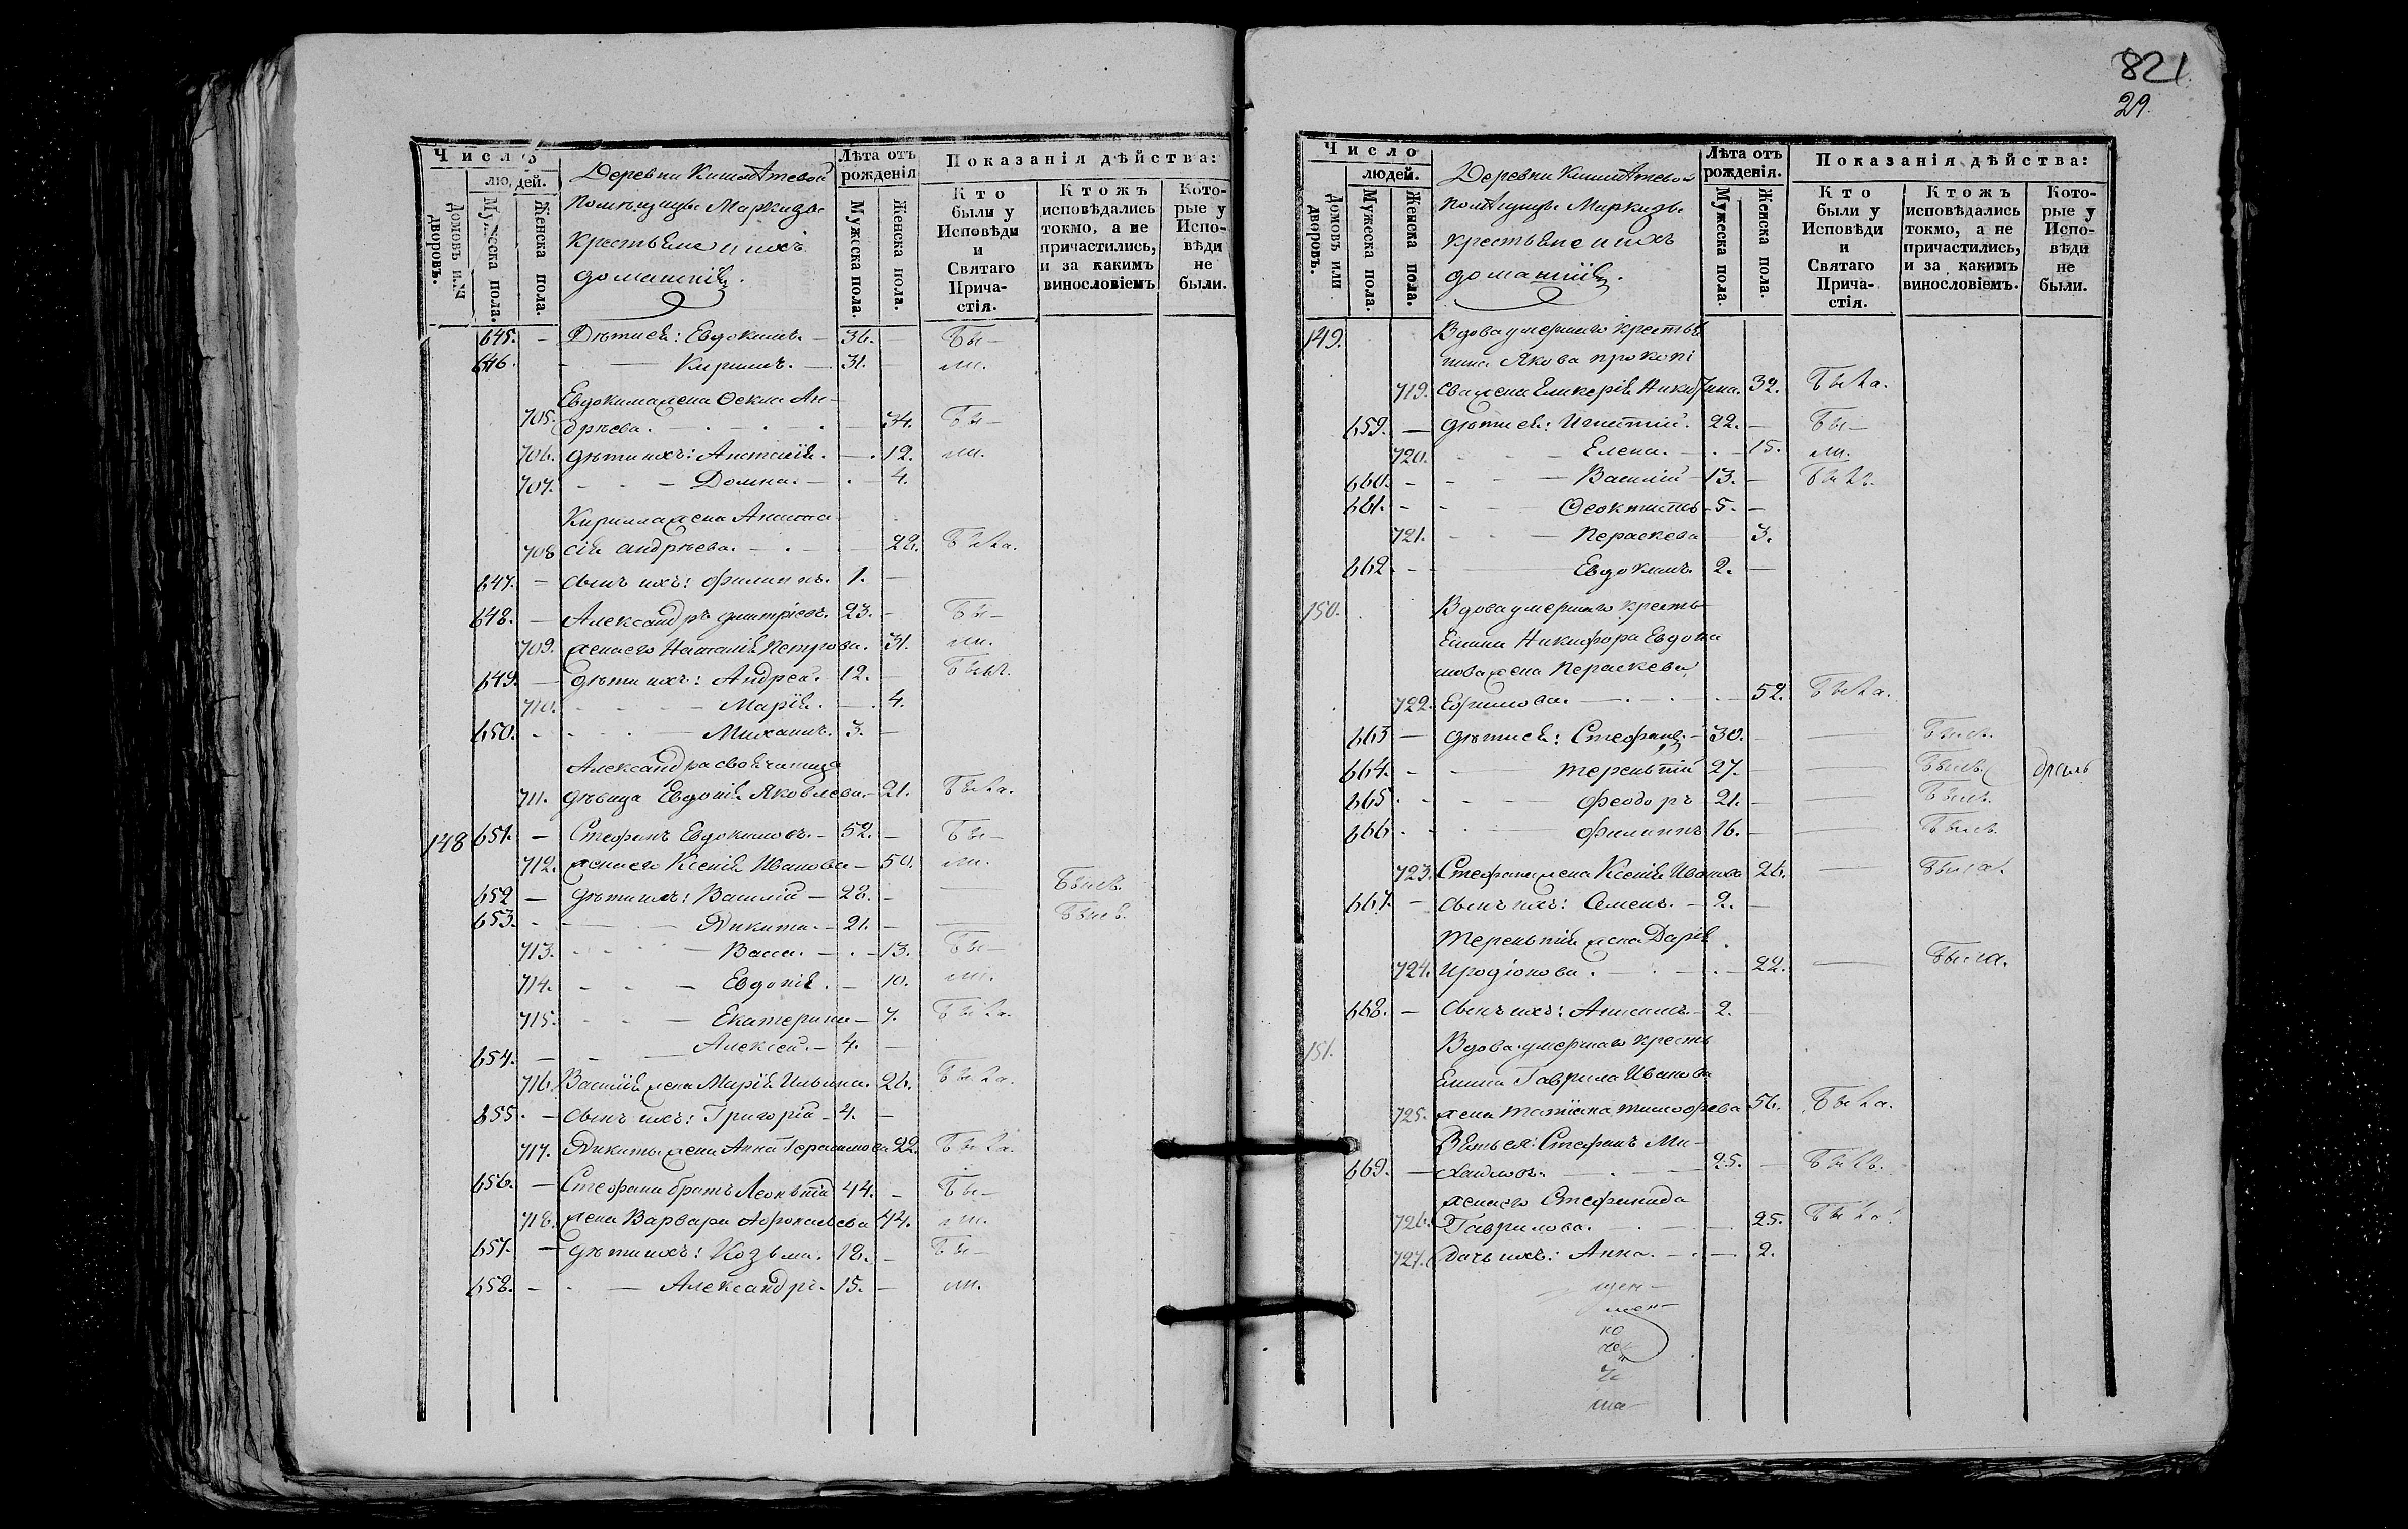 821
29.
Число
людей.
Домовъ или дворовъ.
Мужеска пола.
Женска пола.
Деревни
помѣщицы Маркизы
крестьяне и ихъ
домашнія.
Лѣта отъ рожденія
Мужеска пола.
Женска пола.
Показанія дѣйства:
Кто были у Исповѣди и Святаго Причастія.
Ктожъ исповѣдались токмо, а не причастились, и за какимъ винословіемъ
Которые у Исповѣди не были.
645. — Дѣти ея: Евдокимъ — 36. — Бы—
646. — Кирилъ. — 31. — ли.
Евдокима жена Ѳекла Ан-
705. дрѣева. — 34. Бы—
706. дѣти ихъ: Анѳтасія. — 12. ли.
707. — Домна. — 4.
Кирилла жена Анаста
708 сія Андрѣева. — 28. Была.
647. — сынъ ихъ: Филиппъ. 1. —
648. — Александръ Дмитріевъ. 23. — Бы—
709. жена его Наталія Петрова. 31. ли.
649. — дѣти ихъ: Андрей. 12. — Былъ.
710. — Марія. — 4.
650. — Михаилъ. 3. —
Александра своячиница
711. дѣвица Евдокія Яковлева. — 21. Была.
148 651. — Стефанъ Евдокимовъ. — 52. — Бы—
712. жена его Ксенія Иванова — 50. ли.
652 — дѣти ихъ: Василій — 28. — Былъ.
653. — Никита. — 21. — Былъ.
713. — Васса. — 13. Бы—
714. — Евдокія. — 10. ли.
715. — Екатерина — 7. Была.
654. — Алексей. — 4. —
716. Василія жена Марія Ильина. 26. Была.
655. — сынъ ихъ: Григорій — 4. —
717. Никиты жена Анна Герасимова 22. Была.
656. — Стефана братъ Леонтій 44. — Бы—
718. жена Варвара Афонасьева 44. ли.
657. — дѣти ихъ: Козьма. 18. — Бы—
658. — Александръ. 15. — ли.
Число
людей.
Домовъ или дворовъ.
Мужеска пола.
Женска пола.
Деревни
помѣщицы Маркизы
крестьяне и ихъ
домашнія.
Лѣта отъ рожденія.
Мужеска пола.
Женска пола.
Показанія дѣйства:
Кто были у Исповѣди и Святаго Причастія.
Ктожъ исповѣдались токмо, а не причастились, и за какимъ винословіемъ.
Которые у Исповѣди не были.
149. Вдова умершаго крестья
нина Якова Прокопі
719. ева жена Гликерія Никитина. 32. Была.
659. — дѣти ея: Игнатій. 22. — Бы—
720. — Елена. — 15. ли.
660. — Василій 13. — Былъ.
661. — Ѳеоктистъ — 5. —
721. — Параскева 3.
662. — Евдокимъ. 2. —
150. Вдова умершаго кресть
янина Никифора Евдоки
мова жена Параскева
722. Ефимова. — 52. Была.
663 — дѣти ея: Стефанъ. — 30. — Былъ.
664. — Терентій 27. — Былъ.
665. — Феодоръ 21. — Былъ.
666. — Филиппъ 16. — Былъ.
723. Стефана жена Ксенія Иванова 26. — Была.
667. — сынъ ихъ: Семенъ. — 2. —
Терентія жена Дарія
724. Иродіонова. — 22. — Была.
668. — сынъ ихъ: Анисимъ. — 2. —
151. Вдова умершаго кресть
янина Гаврила Иванова
725. жена Татіана Тимофеева 56. Была.
Зять ея: Стефанъ Ми-
669. — хайловъ. — 25. — Былъ.
жена его Стефанида
726. Гаврилова. — 25. Была.
727. Дочь ихъ: Анна. — 2.